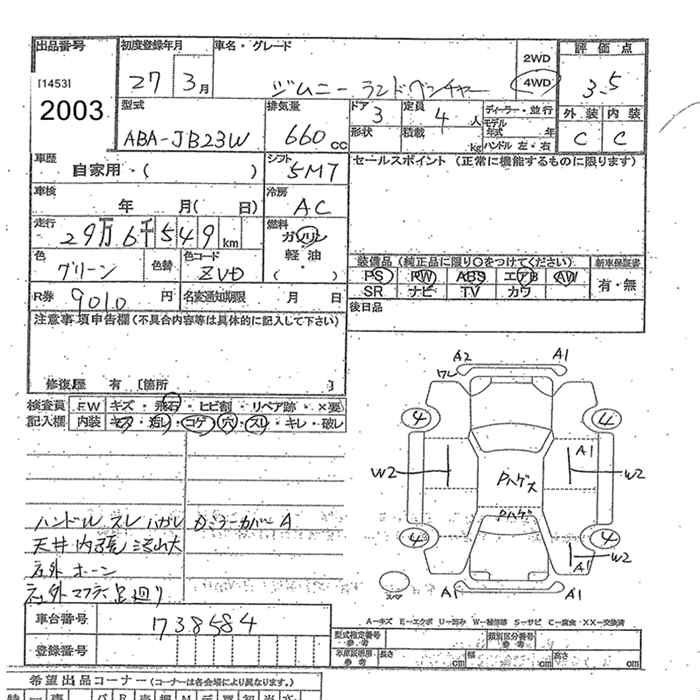 出品番号 初度登録年月 車名・グレード 評価点
[1453] 27 3月 ジムニー ランドベンチャー 2WD 4WD 3.5
2003 型式 排気量 ドア 3 定員 4人 ディーラー・並行 外装 内装
ABA-JB23W 660cc 形状 積載 kg モデル年式 年 C C
ハンドル 左・右
車歴 自家用・( ) シフト 5MT セールスポイント (正常に機能するものに限ります)
車検 年 月( 日) 冷房 AC
走行 29万6千549km 燃料 ガソリン
軽油
( )
色 グリーン 色替 色コード ZVD
装備品 (純正品に限り○をつけてください) 新車保証書
PS PW ABS エアB AW 有・無
SR ナビ TV カワ
R券 9010円 名変通知期限 月 日 後日品
注意事項申告欄(不具合内容等は具体的に記入して下さい)
修復歴 有 [箇所 ]
検査員 FW キズ・飛石・ヒビ割・リペア跡・×要
記入欄 内装 キズ・汚レ・コゲ・穴・スレ・キレ・破レ
A2 A1
ワレ
4 4
A1
W2 W2
Pハゲス
Pハゲ
4 4
W2
A1
A1 A1
スペア
ハンドル スレ ハガレ Dミラーカバー A
天井 内張 シミ 大
社外 ホーン
社外 マフラー 足廻り
A-キズ E-エクボ U-凹み W-補修跡 S-サビ C-腐食 XX-交換済
車台番号 738584 型式指定番号 参考 類別区分番号 参考
登録番号 車庫証明用 参考 長さ cm 幅 cm 高さ cm
希望出品コーナー (コーナーは各会場により異なります。)